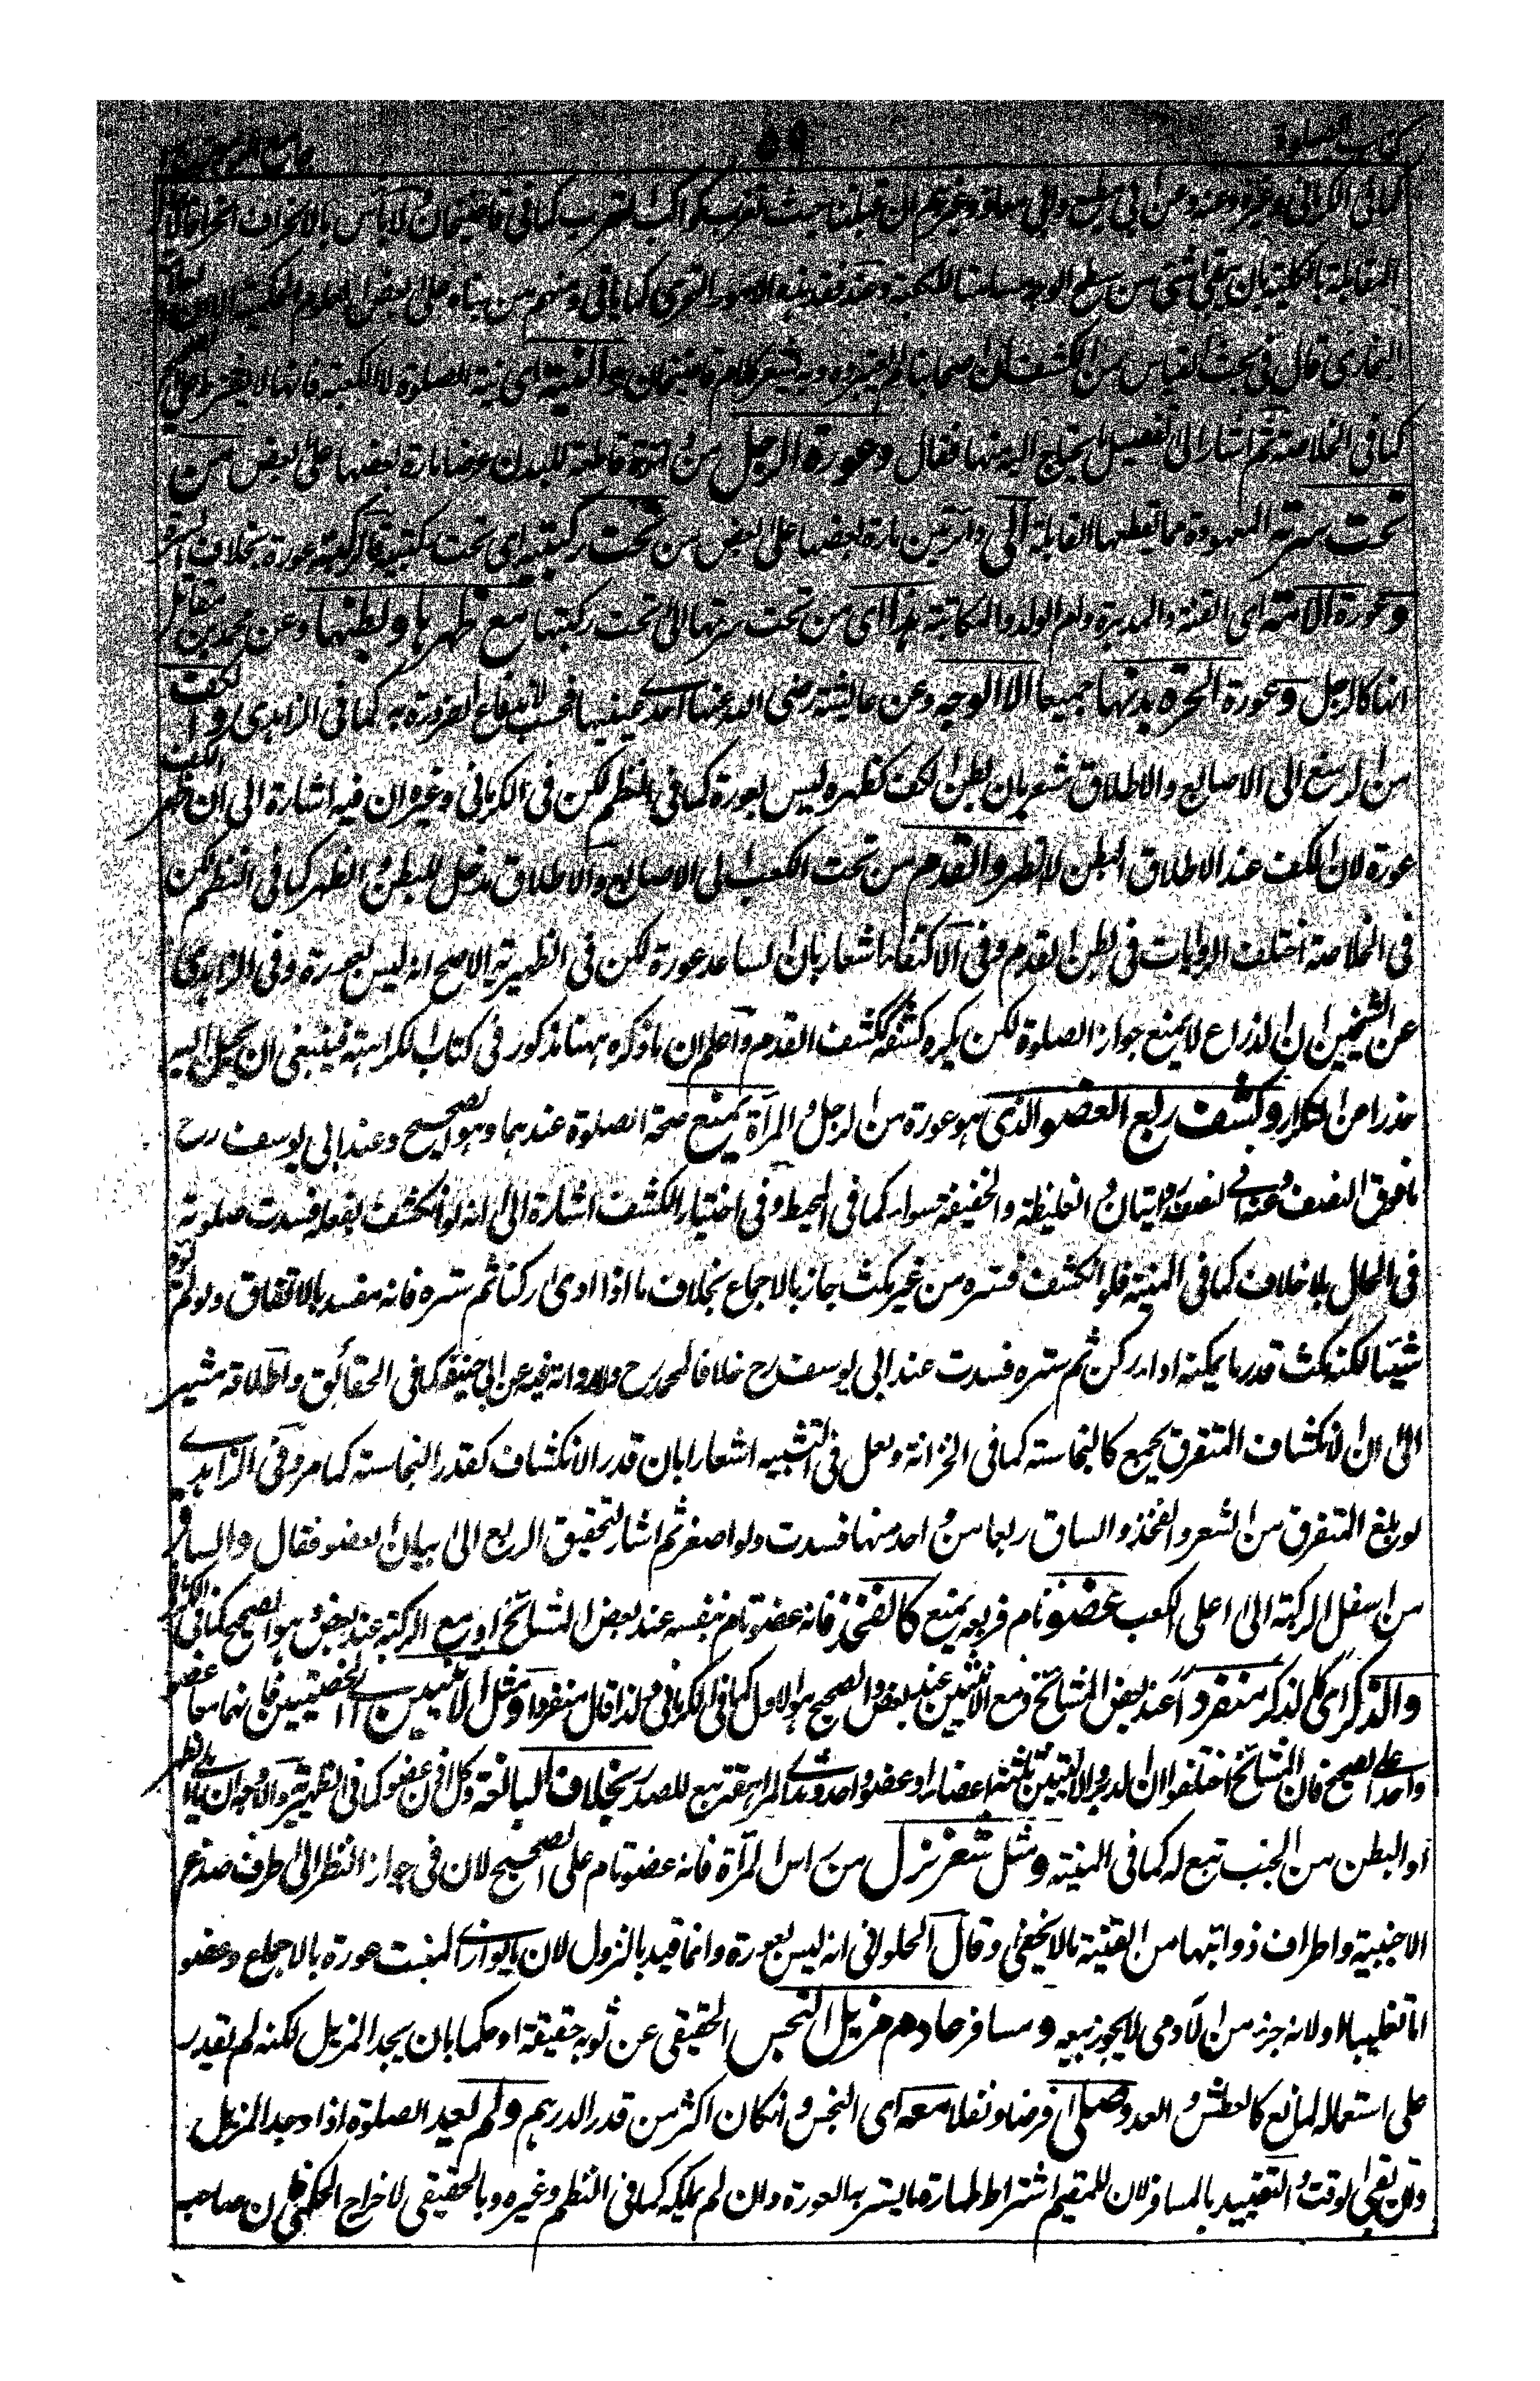 كتاب الصلوة ٥٩ جامع الرموز
كما فى الكرمانى وغيره وعنه وعن ابى مطيع وابى معاذ وغيرهم ان قبلتنا حيث تغرب كما فى قاضيخان ولا بأس بالانحراف انحرافا لا
المقابلة بالكلية بان يبقى شئ من سطح الوجه مسامتا للكعبة
البخارى قال فى بحث القياس من الكشف ان اصحابنا لم يعتبروه وبه يشعر كلام قاضيخان والنية اى نية الصلوة لا الكعبة فانها لا يشترط
كما فى الخلاصة ثم اشار الى تفصيل ما يحتاج اليه منها فقال وعورة الرجل من للبدن عرضا مارة بعضها على بعض من
تحت سرته المعهودة مما يقطعها القابلة الى دائرتين مارة بعضها على بعض من تحت ركبتيه اى تحت ركبتيه فالركبة عورة بخلاف السرة
وعورة الامة اى القنة والمدبرة وام الولد والمكاتبة هذا اى من تحت سرتها الى تحت ركبتها مع ظهرها وبطنها وعن محمد بن مقاتل
انها كالرجل وعورة الحرة بدنها جميعا الا الوجه وعن عايشة رضى الله عنها احدى عينيها فحسب لاندفاع الضرورة به كما فى الزاهدى والكف
من الرسغ الى الاصابع والاطلاق مشعر بان بطن الكف كظهره ليس بعورة كما فى النظم لكن فى الكرمانى وغيره ان فيه اشارة الى ان ظهر الكف
عورة لان الكف عند الاطلاق البطن لا الظهر والقدم من تحت الكعب الى الاصابع والاطلاق مدخل للبطن والظهر كما فى النظم لكن
فى الخلاصة اختلف الروايات فى بطن القدم وفى الاكتفاء اشعار بان الساعد عورة لكن فى الظهيرية الاصح انه ليس بعورة وفى الزاهدى
عن الشيخين ان الذراع لا يمنع جواز الصلوة لكن يكره كشفه ككشف القدم واعلم ان ما ذكره ههنا مذكور فى كتاب الكراهية فينبغى ان يحيل اليه
حذرا من التكرار وكشف ربع العضو الذى هو عورة من الرجل والمرأة يمنع صحة الصلوة عندهما وهو الصحيح وعند ابى يوسف رح
ما فوق النصف وعنه فى نصفه روايتان والغليظة والخفيفة سواء كما فى المحيط وفى اختيار الكشف اشارة الى انه لو انكشف بفعله فسدت صلوته
فى الحال بلا خلاف كما فى المنية فلو انكشف فستره من غير مكث جاز بالاجماع بخلاف ما اذا ادى ركنا ثم ستره فانه مفسد بالاتفاق ولو لم يؤد
شيئا لكنه مكث قدر ما يمكنه اداء ركن ثم ستره فسدت عند ابى يوسف رح خلافا لمحمد رح ولا رواية فيه عن ابى حنيفة كما فى الحقائق واطلاقه مشير
الى ان الانكشاف المتفرق يجمع كالنجاسة كما فى الخزانة ولعل فى التشبيه اشعارا بان قدر الانكشاف كقدر النجاسة كما مر وفى الزاهدى
لو بلغ المتفرق من الشعر والفخذ والساق ربعا من احد منها فسدت ولو اصغر ثم اشار لتحقيق الربع الى بيان العضو فقال والساق
من اسفل الركبة الى اعلى الكعب عضو تام فربعه يمنع كالفخذ فانه عضو تام بنفسه عند بعض المشائخ او مع الركبة عند بعض وهو الصحيح كما فى
والذكر اى كالذكر منفردا عند بعض المشائخ ومع الانثيين عند بعض والصحيح هو الاول كما فى الكرمانى ولذا قال منفردا ومثل الانثيين اى الخصيتين فانهما معا عضو
واحد على الصحيح فان المشائخ اختلفوا ان الدبر والاليتين ثلثة اعضاء او عضو واحد وثدى المراهقة تبع للصدر بخلاف البالغة وكل اذن عضو كما فى الظهيرية والاوجه ان
او البطن من الجنب تبع له كما فى المنية ومثل شعر نزل من راس المرأة فانه عضو تام على الصحيح لان فى جواز النظر الى طرف صدغ
الاجنبية واطراف ذوائبها من الفتنة ما لا يخفى وقال الحلوانى انه ليس بعورة وانما قيد بالنزول لان ما يوازى المنبت عورة بالاجماع وعضو
اما تغليبا او لانه جزء من الآدمى لا يجوز بيعه ومسافر عادم مزيل النجس الحقيقى عن ثوبه حقيقة او حكما بان يجد المزيل لكنه لم يقدر
على استعماله لمانع كالعطش والعدو صلى فرضا ونفلا معه اى النجس وان كان اكثر من قدر الدرهم ولم يعد الصلوة اذا وجد المزيل
وان بقى الوقت والتقييد بالمسافر لان للمقيم اشتراط طهارة ما يستر به العورة وان لم يملكه كما فى النظم وغيره وبالحقيقى لاخراج الحكمى فان صاحبه